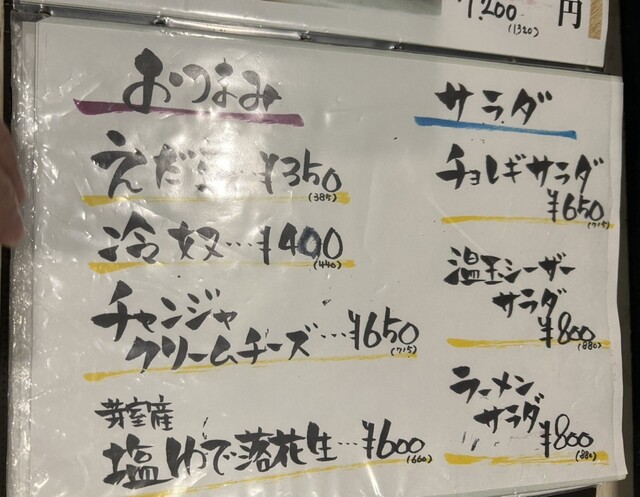 1,200円
(1320)
おつまみ
えだ豆…¥350
(385)
冷奴…¥400
(440)
チャンジャ
クリームチーズ…¥650
(715)
芽室産
塩ゆで落花生…¥600
(660)
サラダ
チョレギサラダ
¥650
(715)
温玉シーザー
サラダ
¥800
(880)
ラーメン
サラダ
¥800
(880)